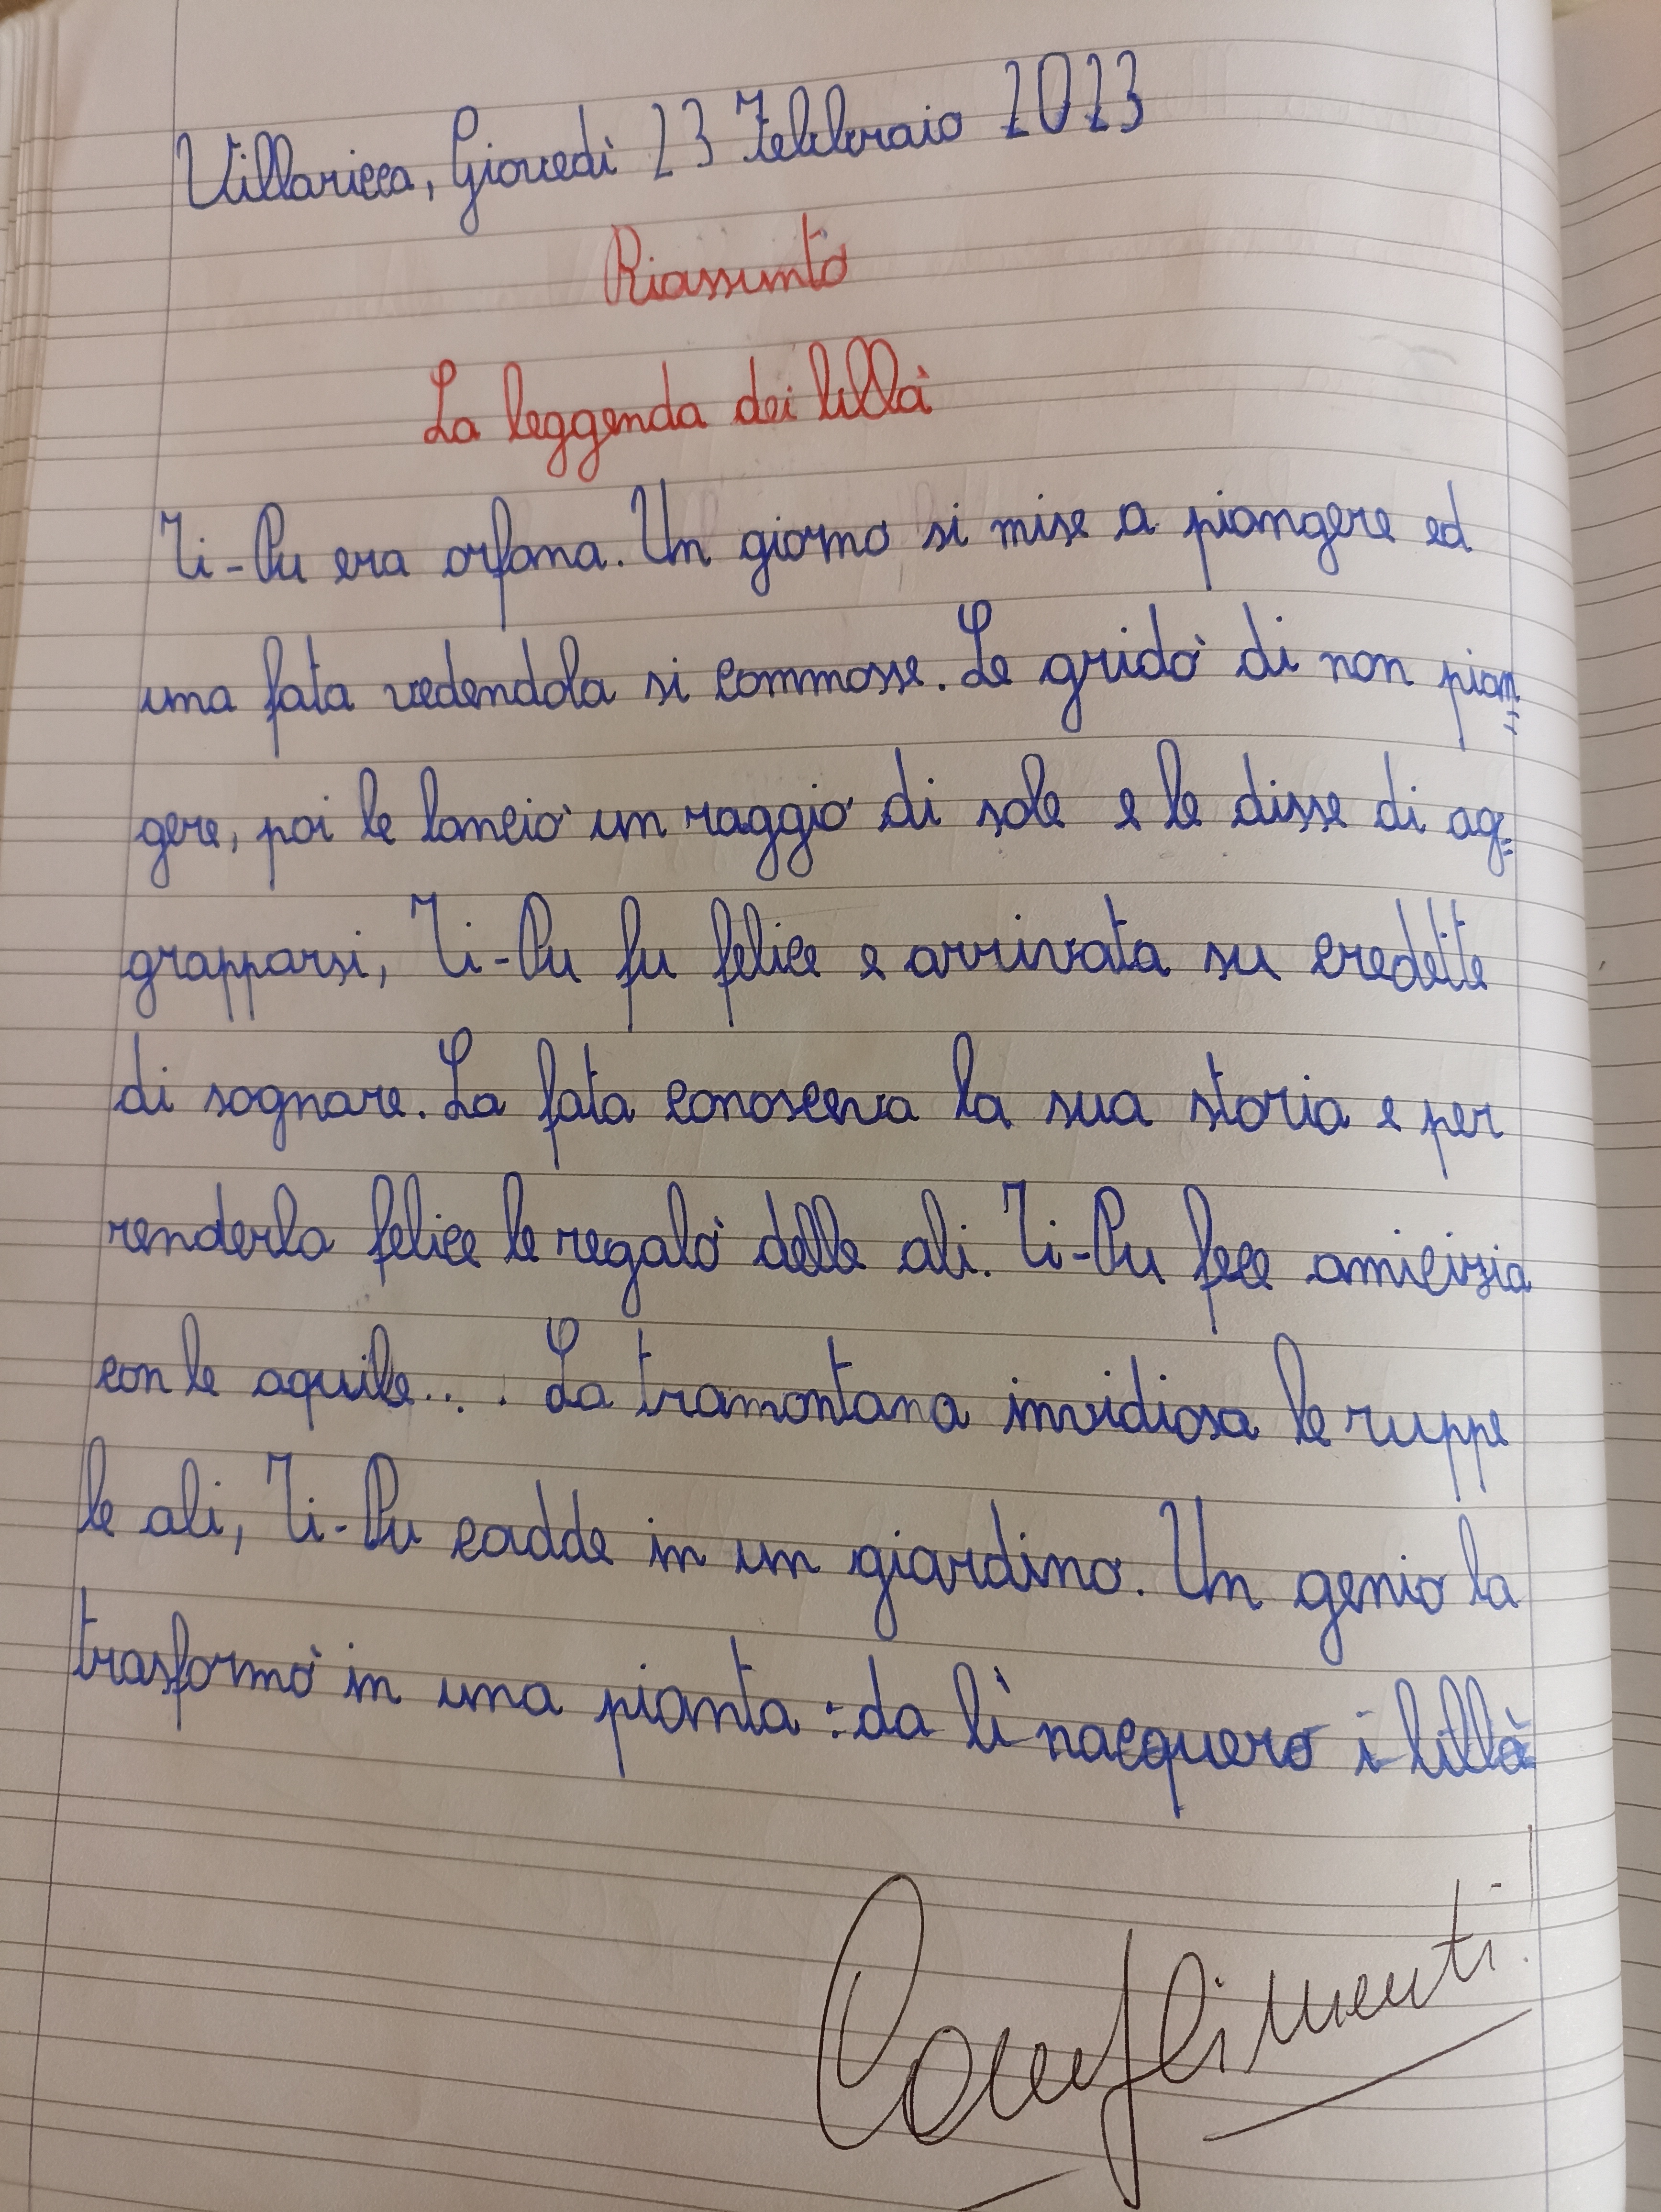 Villaricca, Giovedì 23 Febbraio 2023
Riassunto
La leggenda dei lillà
Ti-Pu era orfana. Un giorno si mise a piangere ed
una fata vedendola si commosse. Le gridò di non pian=
gere, poi le lanciò un raggio di sole e le disse di ag=
grapparsi, Ti-Pu fu felice e arrivata su credette
di sognare. La fata conosceva la sua storia e per
renderla felice le regalò delle ali. Ti-Pu fece amicizia
con le aquile... . La tramontana invidiosa le ruppe
le ali, Ti-Pu cadde in un giardino. Un genio la
trasformò in una pianta : da lì nacquero i lillà
Complimenti!